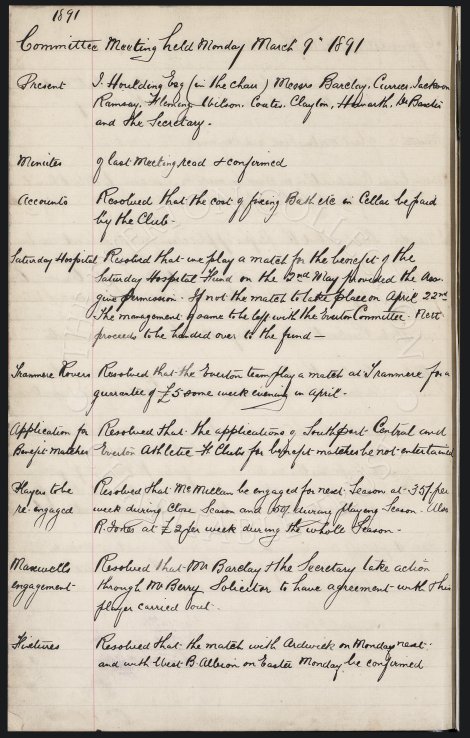 1891
Committee Meeting held Monday March 9th 1891
Present J. Houlding Esq (in the chair) Messrs Barclay. Currier. Jackson
Ramsay, Fleming Wilson. Coates. Clayton, Howarth, Dr Baxter
and the Secretary.
Minutes of last Meeting read & confirmed
Accounts Resolved that the cost of fixing Bath etc in Cellar be paid
by the Club.
Saturday Hospital Resolved that we play a match for the benefit of the
Saturday Hospital Fund on the 2nd May provided the Ass.
give permission. If not the match to take place on April 22nd
The management of same to be left with the Everton Committee. Nett
proceeds to be handed over to the fund —
Tranmere Rovers Resolved that the Everton team play a match at Tranmere for a
guarantee of £5 some week evening in April.
Application for Resolved that the applications of Southport Central and
Benefit Matches Everton Athletic F. Clubs for benefit matches be not entertained
Players to be Resolved that McMillan be engaged for next Season at 35/- per
re-engaged week during Close Season and 50/- during playing Season. Also
R. Jones at £2 per week during the whole Season.
Maxwells Resolved that Mr Barclay & the Secretary take action
engagement through Mr Berry Solicitor to have agreement with this
player carried out.
Fixtures Resolved that the match with Ardwick on Monday next
and with West B. Albion on Easter Monday be confirmed